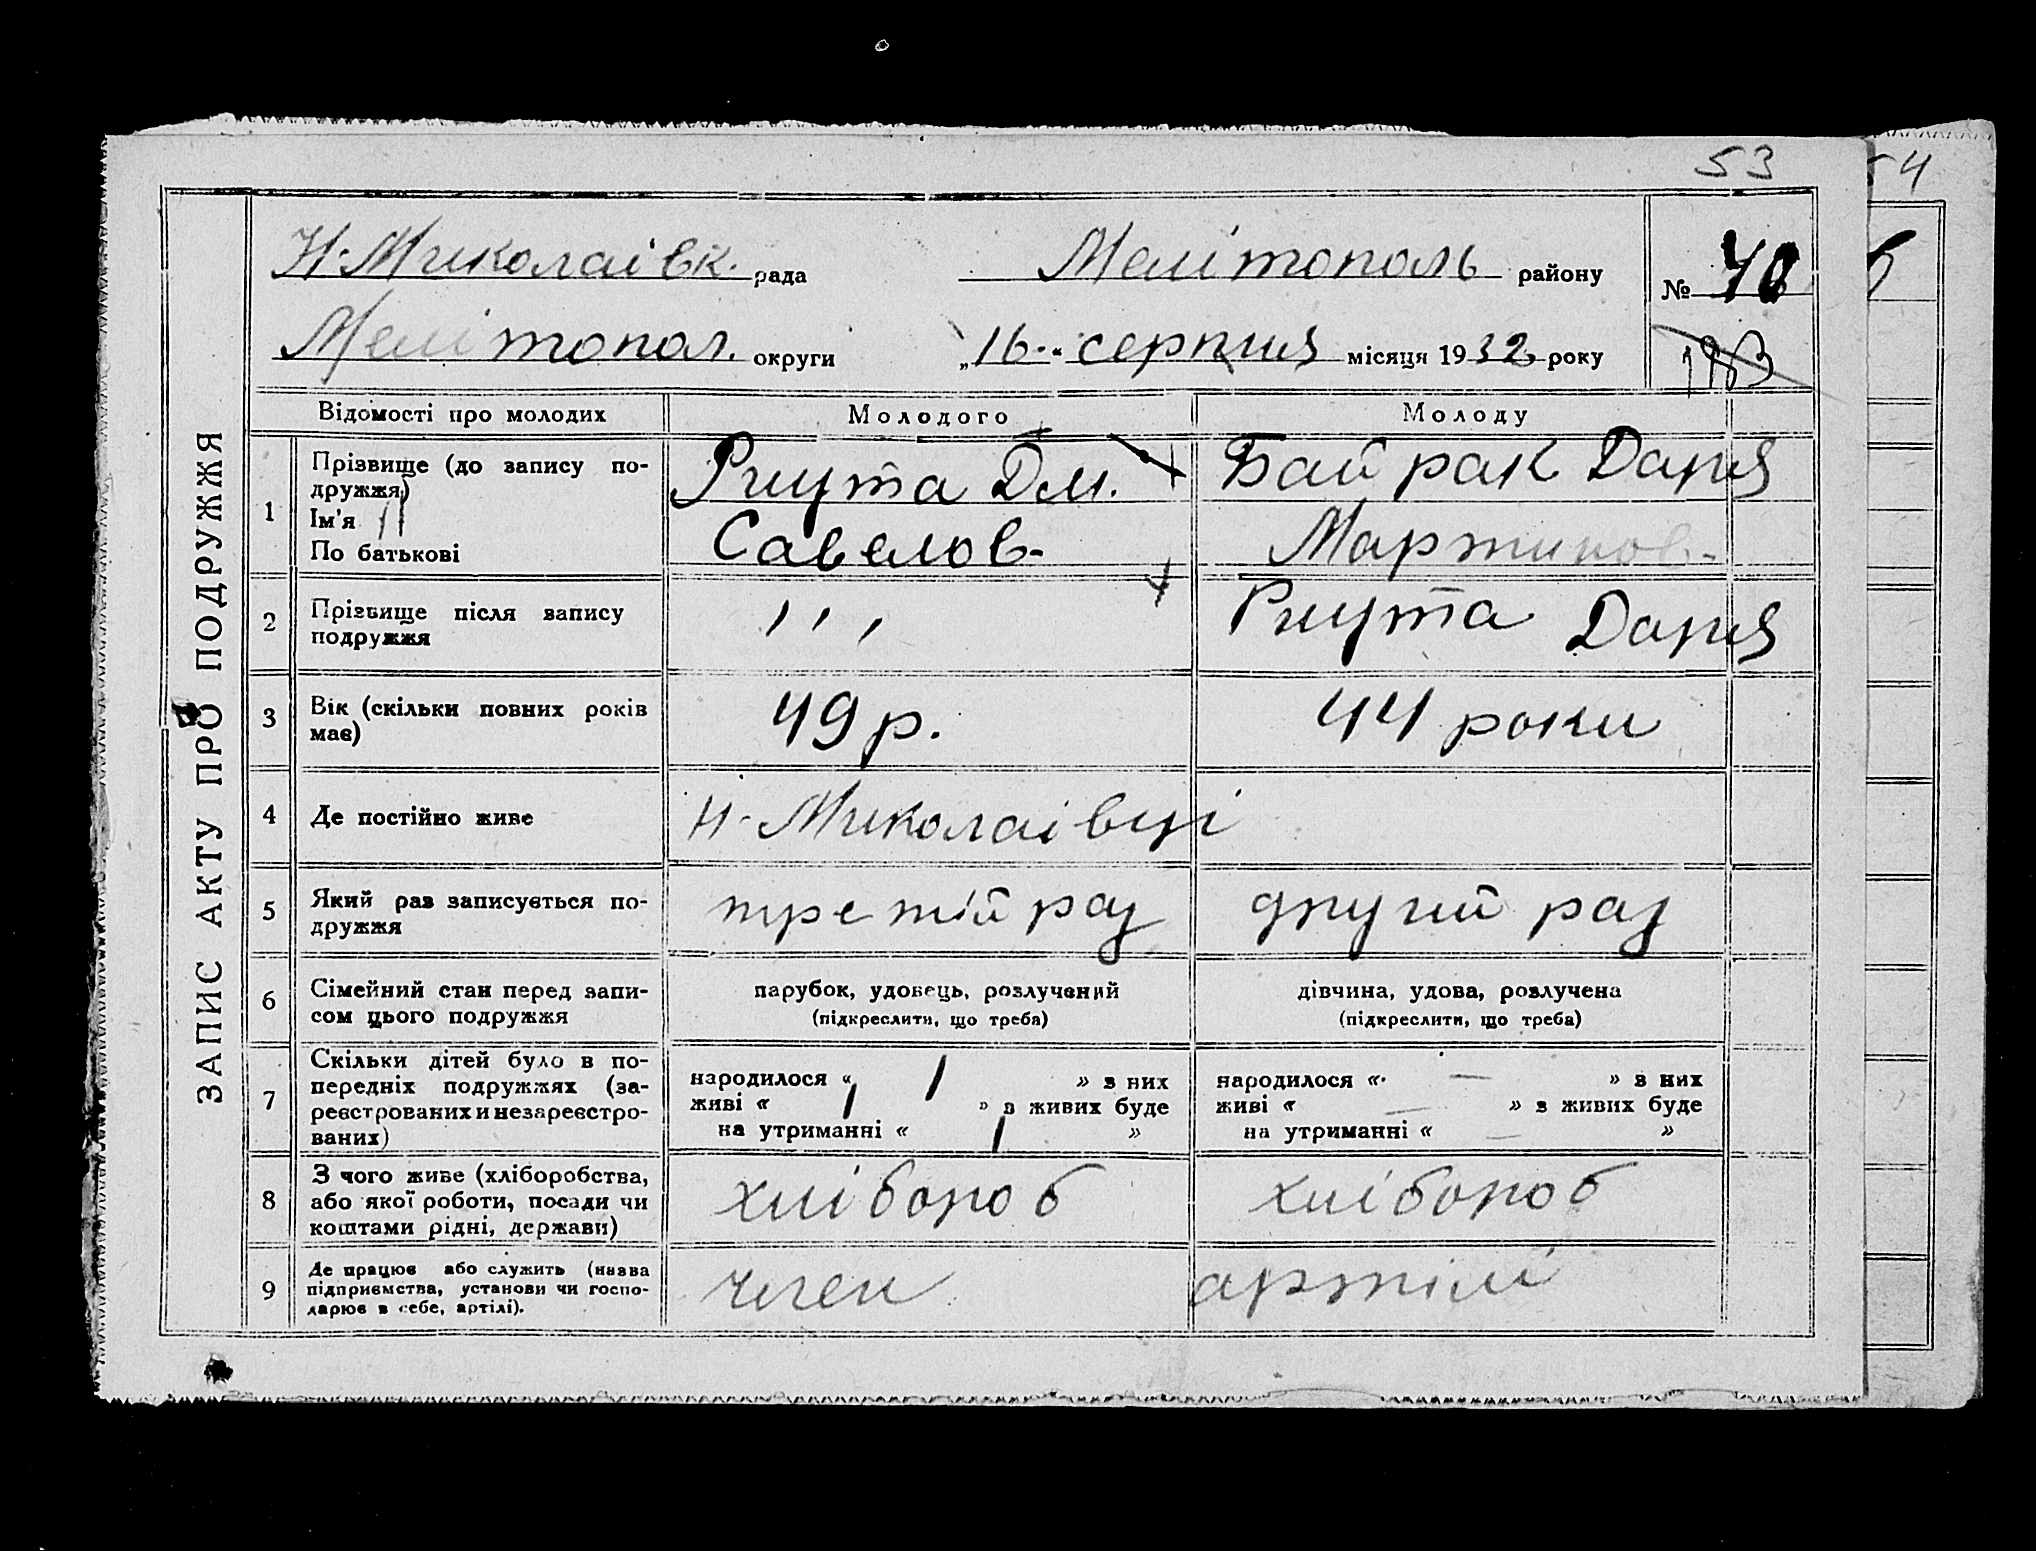 53
54
Н-Миколаівк. рада Мелітополь району № 40
Мелітопол. округи „16" серпня місяця 1932 року
ЗАПИС АКТУ ПРО ПОДРУЖЖЯ
Відомості про молодих Молодого Молоду
1
Прізвище (до запису по-
дружжя)
Ім'я
По батькові
Ригута Дм.
Савелов-
Байрак Дария
Мартинов-
2
Прізвище після запису
подружжя
, , ,
Ригута Дария
3
Вік (скільки повних років
має)
49 р.
44 роки
4
Де постійно живе
Н-Миколаівці
5
Який раз записується по-
дружжя
третій раз
другий раз
6
Сімейний стан перед запи-
сом цього подружжя
парубок, удовець, розлучений
(підкреслити, що треба)
дівчина, удова, розлучена
(підкреслити, що треба)
7
Скільки дітей було в по-
передніх подружжях (за-
реєстрованих и незареєстро-
ваних)
народилося « 1 » з них
живі « 1 » з живих буде
на утриманні « 1 »
народилося « — » з них
живі « — » з живих буде
на утриманні « — »
8
З чого живе (хліборобства,
або якої роботи, посади чи
коштами рідні, держави)
хлібороб
хлібороб
9
Де працює або служить (назва
підприємства, установи чи госпо-
дарює в себе, артілі).
член артілі